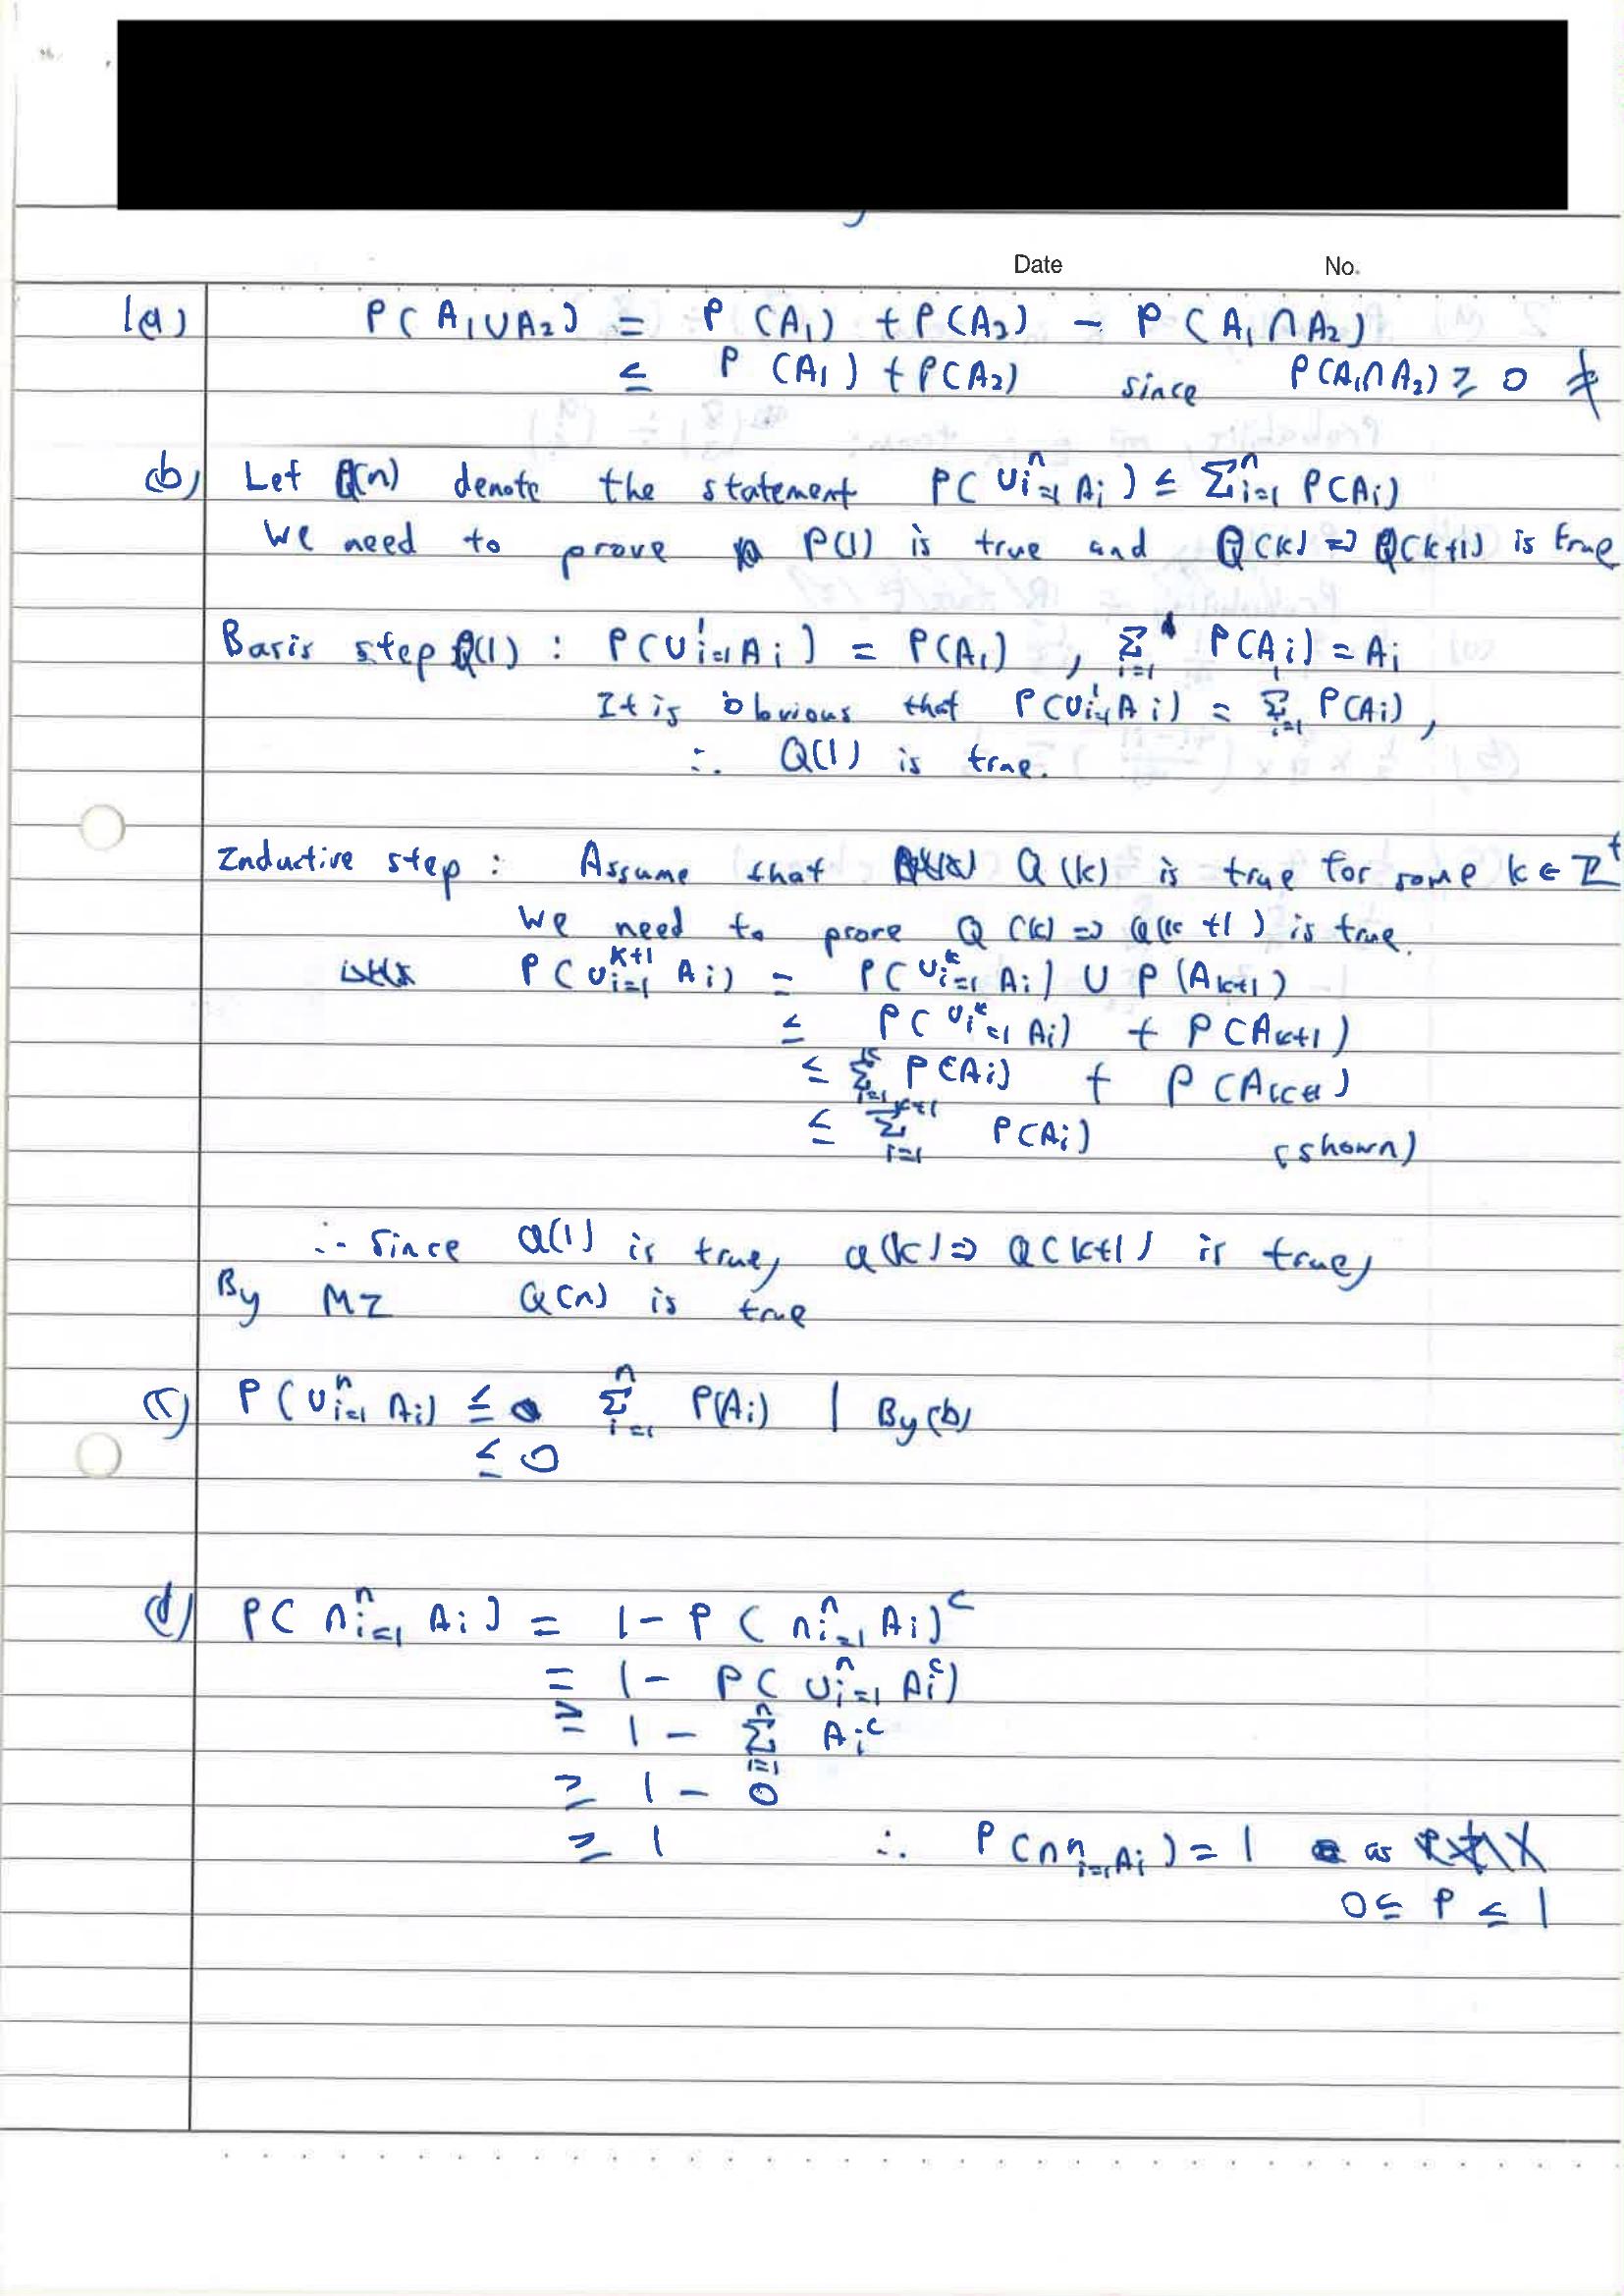 Date No.
1(a) P(A₁∪A₂) = P(A₁) + P(A₂) - P(A₁∩A₂)
≤ P(A₁) + P(A₂) since P(A₁∩A₂) ≥ 0
(b) Let Q(n) denote the statement P(∪ⁿᵢ₌₁ Aᵢ) ≤ Σⁿᵢ₌₁ P(Aᵢ)
We need to prove P(1) is true and Q(k) ⇒ Q(k+1) is true
Basis step Q(1) : P(∪¹ᵢ₌₁ Aᵢ) = P(A₁) , Σ¹ᵢ₌₁ P(Aᵢ) = Aᵢ
It is obvious that P(∪¹ᵢ₌₁ Aᵢ) = Σ¹ᵢ₌₁ P(Aᵢ),
∴ Q(1) is true.
Inductive step : Assume that Q(k) is true for some k ∈ ℤ⁺
We need to prove Q(k) ⇒ Q(k+1) is true.
P(∪ᵏ⁺¹ᵢ₌₁ Aᵢ) = P(∪ᵏᵢ₌₁ Aᵢ) ∪ P(Aₖ₊₁)
≤ P(∪ᵏᵢ₌₁ Aᵢ) + P(Aₖ₊₁)
≤ Σᵏᵢ₌₁ P(Aᵢ) + P(Aₖ₊₁)
≤ Σᵏ⁺¹ᵢ₌₁ P(Aᵢ) (shown)
∴ since Q(1) is true, Q(k) ⇒ Q(k+1) is true,
By MI Q(n) is true
(c) P(∪ⁿᵢ₌₁ Aᵢ) ≤ Σⁿᵢ₌₁ P(Aᵢ) | By (b)
≤ 0
(d) P(∩ⁿᵢ₌₁ Aᵢ) = 1 - P(∩ⁿᵢ₌₁ Aᵢ)ᶜ
= 1 - P(∪ⁿᵢ₌₁ Aᵢᶜ)
≥ 1 - Σⁿᵢ₌₁ Aᵢᶜ
≥ 1 - 0
≥ 1 ∴ P(∩ⁿᵢ₌₁ Aᵢ) = 1 as
0 ≤ P ≤ 1